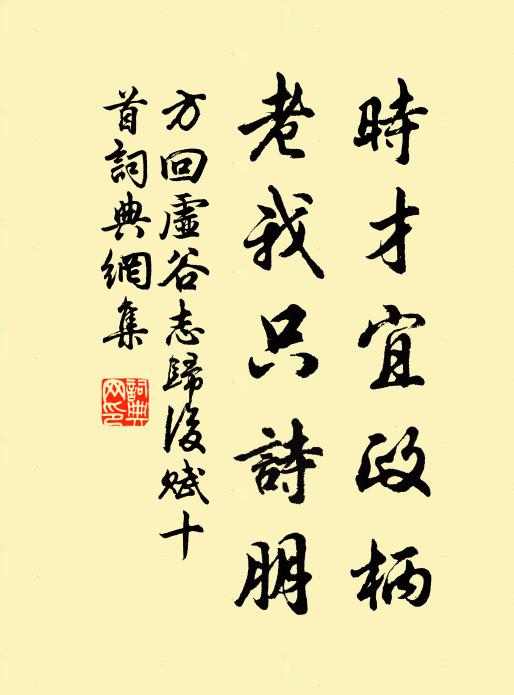 時才宜政柄
老我只詩朋
方回虛谷志歸後賦十
首詞典網集
詞典
网印